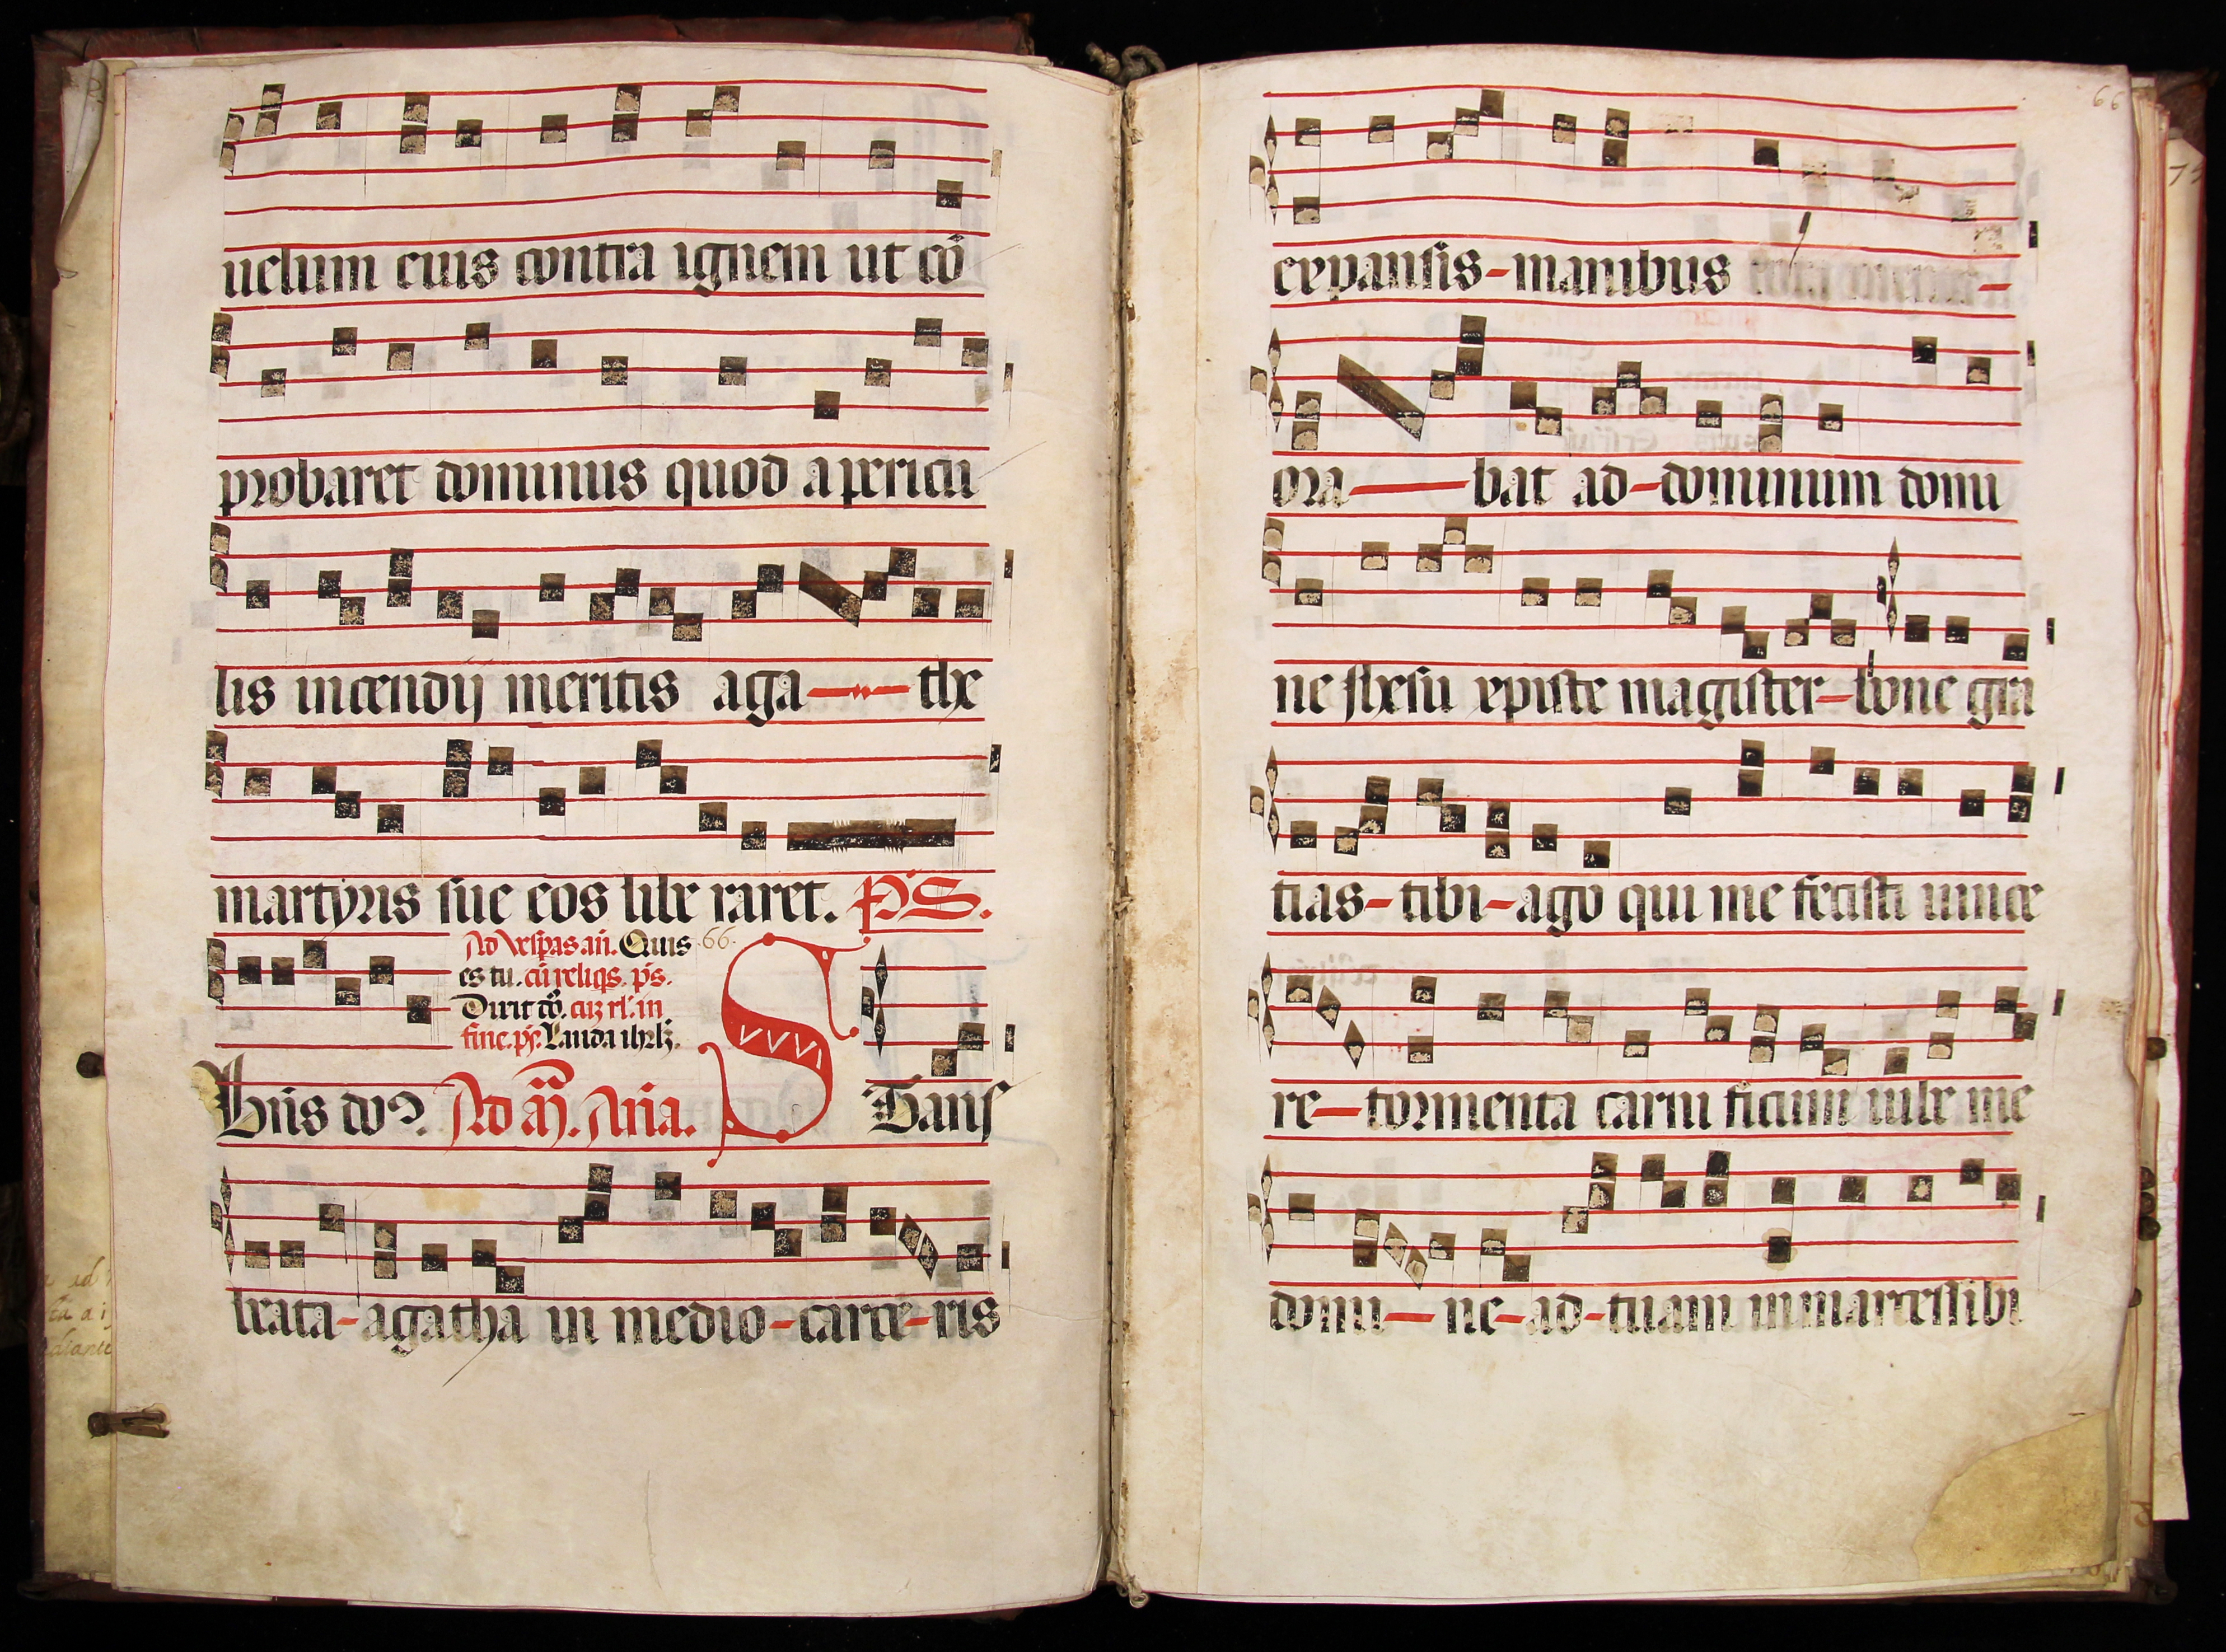 uelum eius contra ignem ut cō
probaret dominus quod a pericu
lis incendij meritis aga the
martyris sue eos libe raret. PS.
Ad vesperas. añ. Quis 66.
es tu. cū reliqs. ps.
Dixit dō. cuz rl'. in
fine. ps. Lauda ihrlz.
Bñs do². Ad añ. Aña. S Tans
beata-agatha in medio-carce-ris
66
expansis-manibus
ora bat ad-dominum domi
ne ihesu xpiste magister-bone gra
tias-tibi-ago qui me fecisti uince
re-tormenta carni ficum iube me
domi ne-ad-tuam inmarcessibi